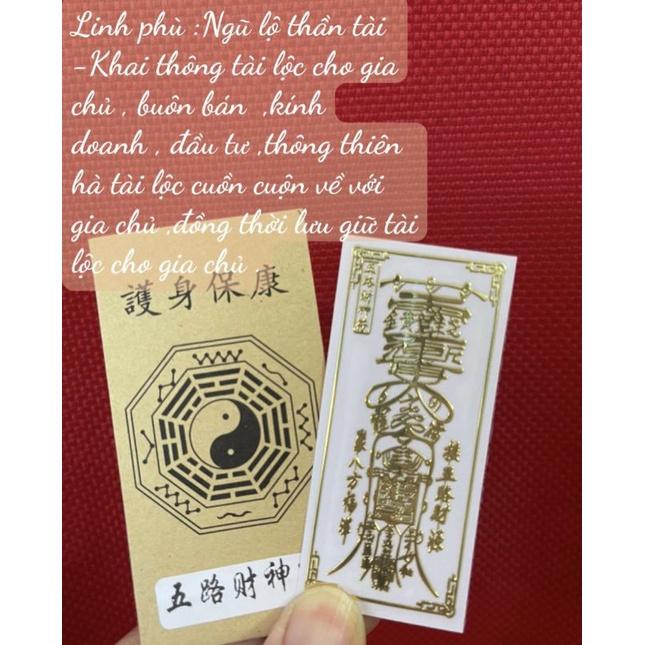 Linh phù :Ngũ lộ thần tài
-Khai thông tài lộc cho gia
chủ , buôn bán ,kính
doanh , đầu tư ,thông thiên
hà tài lộc cuồn cuộn về với
gia chủ ,đồng thời lưu giữ tài
lộc cho gia chủ
護身保康
五路财神
接五路財源
聚八方福澤